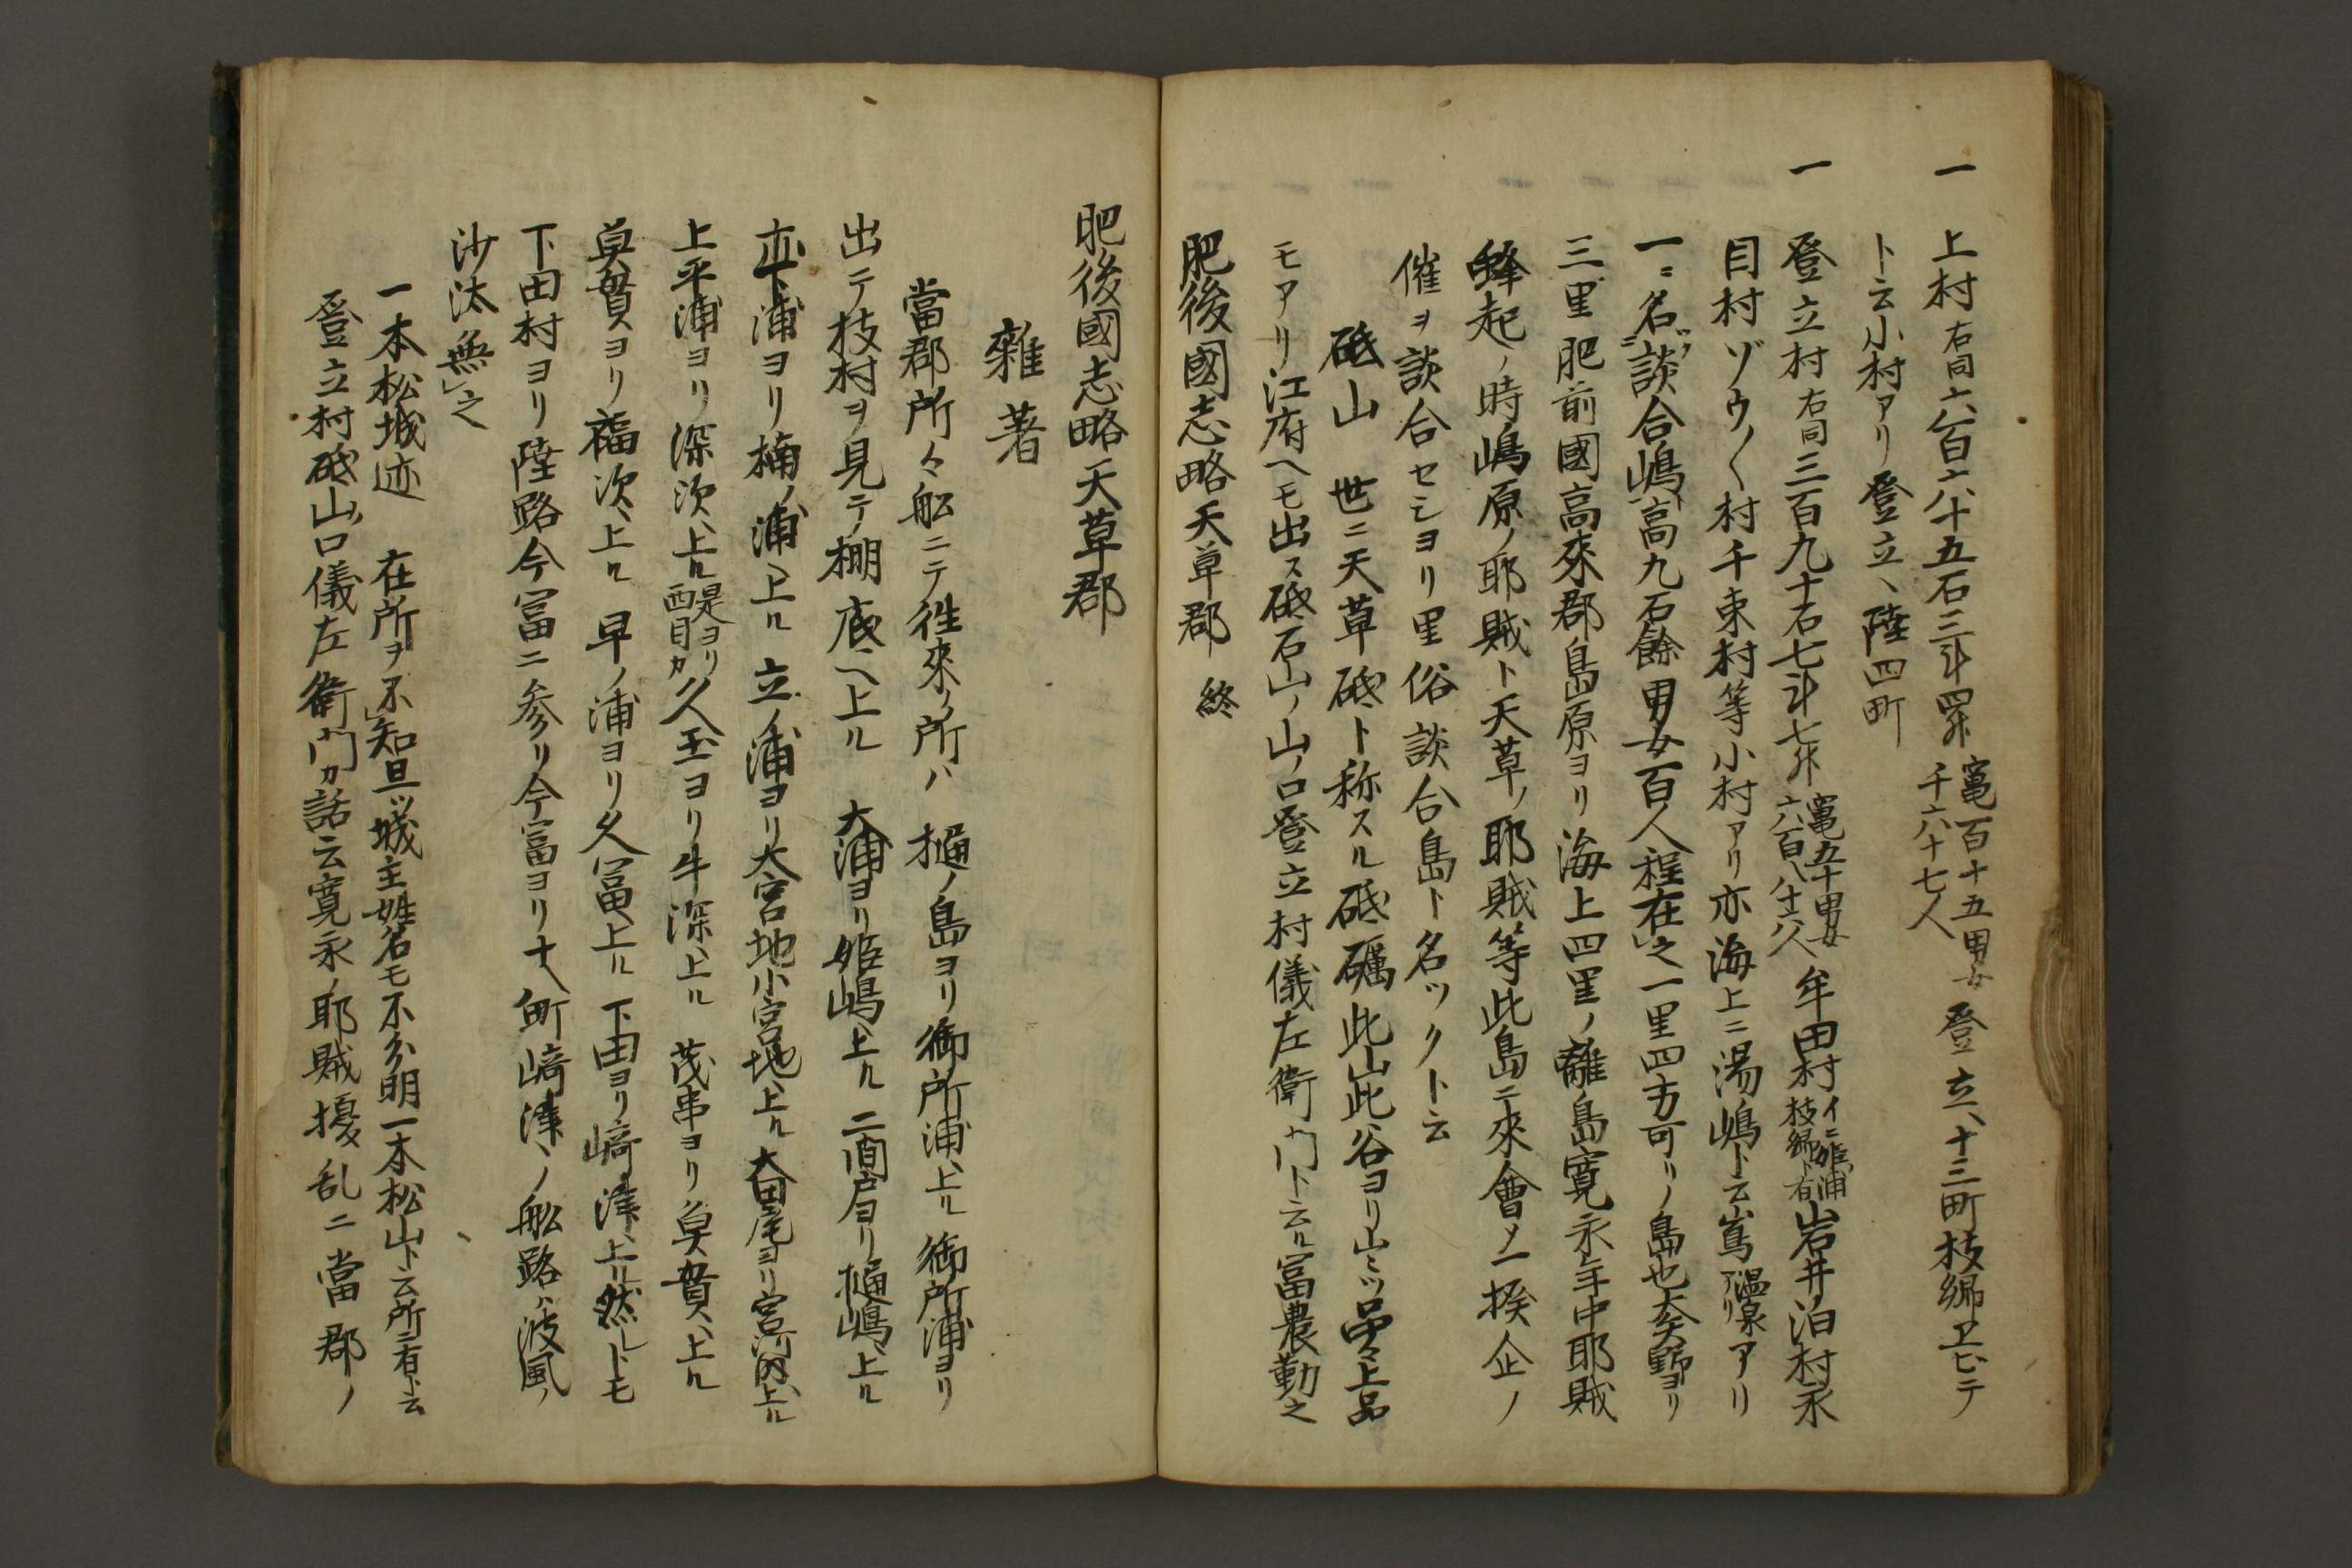 一 上村右同六百六十五石三斗四升竃百十五男女千六十七人登立ヘ十三町枝郷ヱビテ
ト云小村アリ登立ヘ陸四町
一 登立村右同三百九十石七斗七升竃五十男女六百八十六人牟田村イニ姫浦枝郷ト有岩井泊村永
目村ゾウ〱村千束村等小村アリ亦海上ニ湯嶋ト云嶌温泉アリアリ
一ニ名談合嶋高九石餘男女百人程在之一里四方可リノ島也大矢野ヨリ
三里肥前國高來郡島原ヨリ海上四里ノ離島寛永年中耶賊
蜂起ノ時嶋原ノ耶賊ト天草ノ耶賊等此島ニ來會ソ一揆企ノ
催ヲ談合セシヨリ里俗談合島ト名ツクト云
砥山 世ニ天草砥ト称スル砥礪此山此谷ヨリ出ツ上品
モアリ江府ヘモ出ス砥石山ノ山ノ口登立村儀左衛門ト云ル冨農勤之
肥後國志略天草郡 終
肥後國志略天草郡
雜著
當郡所々舩ニテ徃來ノ所ハ樋ノ島ヨリ御所浦ヘ上ル御所浦ヨリ
出テ枝村ヲ見テ棚底ヘ上ル 大浦ヨリ姫嶋ヘ上ル二間戸ヨリ樋嶋ヘ上ル
亦下浦ヨリ楠ノ浦ヘ上ル 立ノ浦ヨリ大宮地小宮地ヘ上ル大田尾ヨリ宮河内ヘ上ル
上平浦ヨリ深次ヘ上ル是ヨリ西目カ久玉ヨリ牛深ヘ上ル 茂串ヨリ真貫ヘ上ル
真貫ヨリ福次ヘ上ル 早ノ浦ヨリ久冨ヘ上ル 下田ヨリ﨑津ヘ上ル然レトモ
下田村ヨリ陸路今冨ニ参リ今冨ヨリ十八町﨑津ヘノ舩路ハ波風ノ
沙汰無之
一本松城迹 在所ヲ不知且ツ城主姓名モ不分明一本松山ト云所ニ有ト云
登立村砥山ノ口儀左衛門カ話云寛永ノ耶賊擾乱ニ當郡ノ